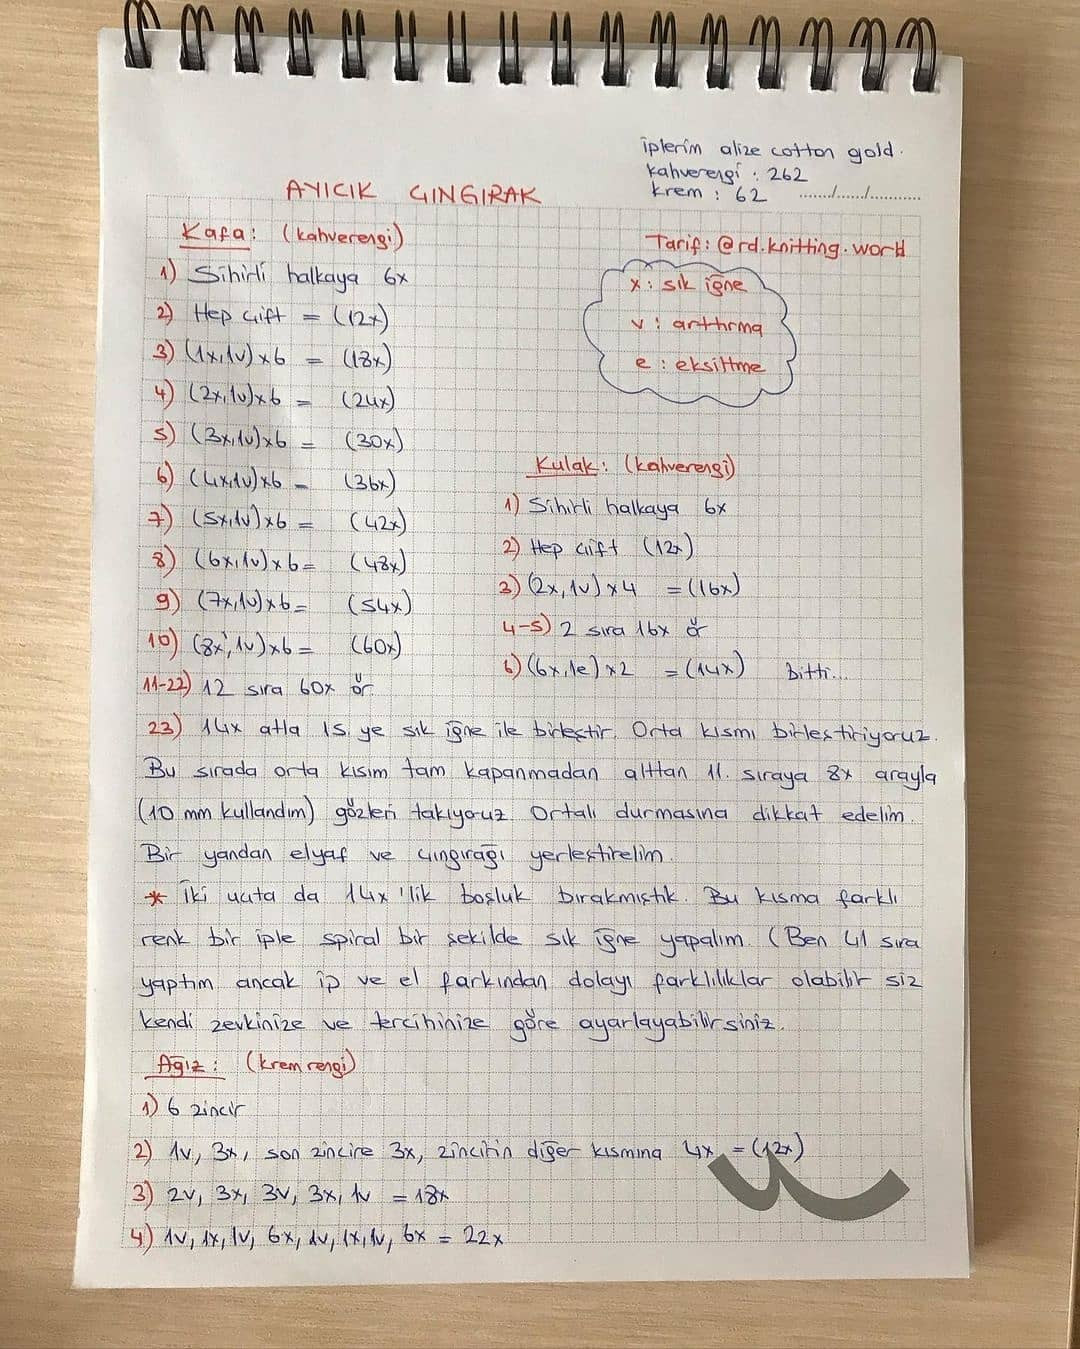 iplerim alize cotton gold.
kahverengi : 262
krem : 62 ....../....../............
AYICIK ÇINGIRAK
Kafa: (kahverengi)
1) Sihirli halkaya 6x
2) Hep çift = (12x)
3) (1x,1v)x6 = (18x)
4) (2x,1v)x6 = (24x)
5) (3x,1v)x6 = (30x)
6) (4x,1v)x6 = (36x)
7) (5x,1v)x6 = (42x)
8) (6x,1v)x6= (48x)
9) (7x,1v)x6= (54x)
10) (8x,1v)x6= (60x)
11-22) 12 sıra 60x ör
Tarif: @rd.knitting.world
x : sık iğne
v : arttırma
e : eksiltme
Kulak: (kahverengi)
1) Sihirli halkaya 6x
2) Hep çift (12x)
3) (2x,1v)x4 = (16x)
4-5) 2 sıra 16x ör
6) (6x,1e)x2 = (14x) bitti...
23) 14x atla 15. ye sık iğne ile birleştir. Orta kısmı birleştiriyoruz.
Bu sırada orta kısım tam kapanmadan alttan 11. sıraya 8x arayla
(10 mm kullandım) gözleri takıyoruz ortalı durmasına dikkat edelim.
Bir yandan elyaf ve çıngırağı yerleştirelim.
* İki uçta da 14x'lik boşluk bırakmıştık. Bu kısma farklı
renk bir iple spiral bir şekilde sık iğne yapalım. (Ben 41 sıra
yaptım ancak ip ve el farkından dolayı farklılıklar olabilir siz
kendi zevkinize ve tercihinize göre ayarlayabilirsiniz.
Ağız: (krem rengi)
1) 6 zincir
2) 1v, 3x, son zincire 3x, zincirin diğer kısmına 4x = (12x)
3) 2v, 3x, 3v, 3x, 1v = 18x
4) 1v, 1x, 1v, 6x, 1v, 1x, 1v, 6x = 22x